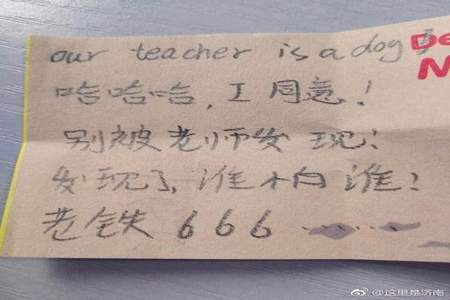 our teacher is a dog
De
N
哈哈哈，I 同意！
别被老师发现！
发现了，谁怕谁？
老铁 666 ……
@这里是济南